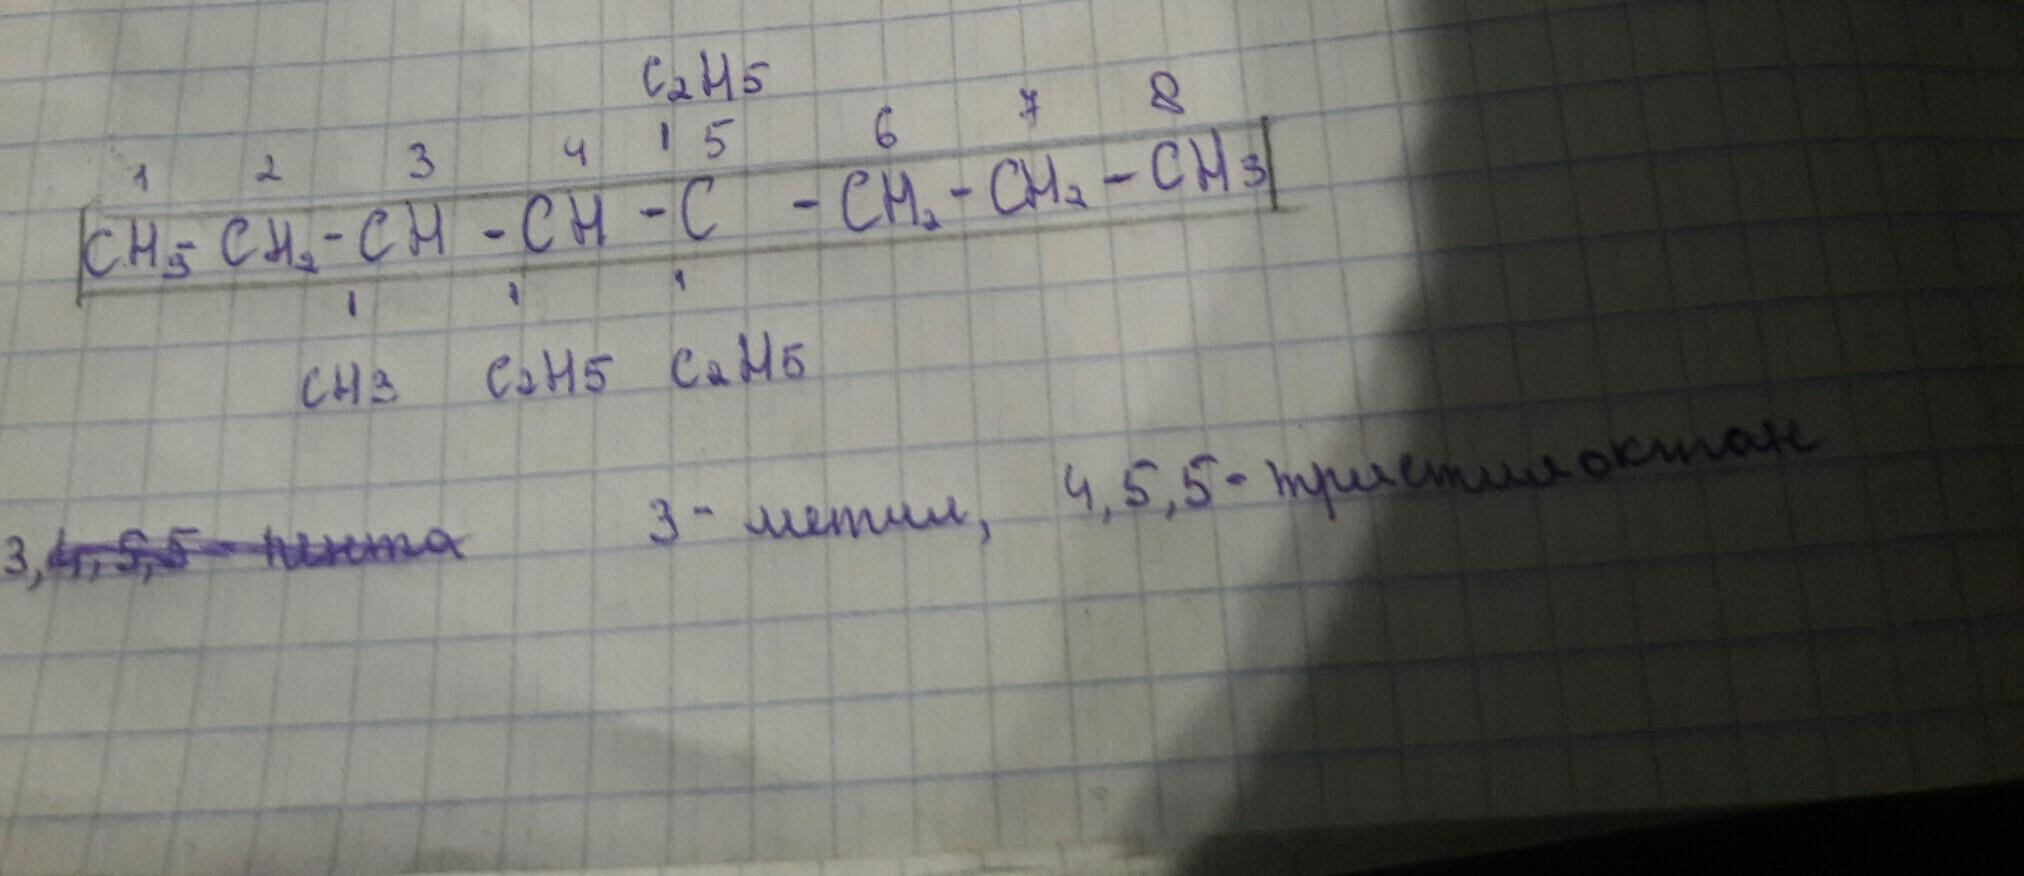 C2H5
1 2 3 4 5 6 7 8
CH3 - CH2 - CH - CH - C - CH2 - CH2 - CH3
CH3 C2H5 C2H5
3, 4, 5, 5 - пента 3 - метил, 4, 5, 5 - триэтилоктан